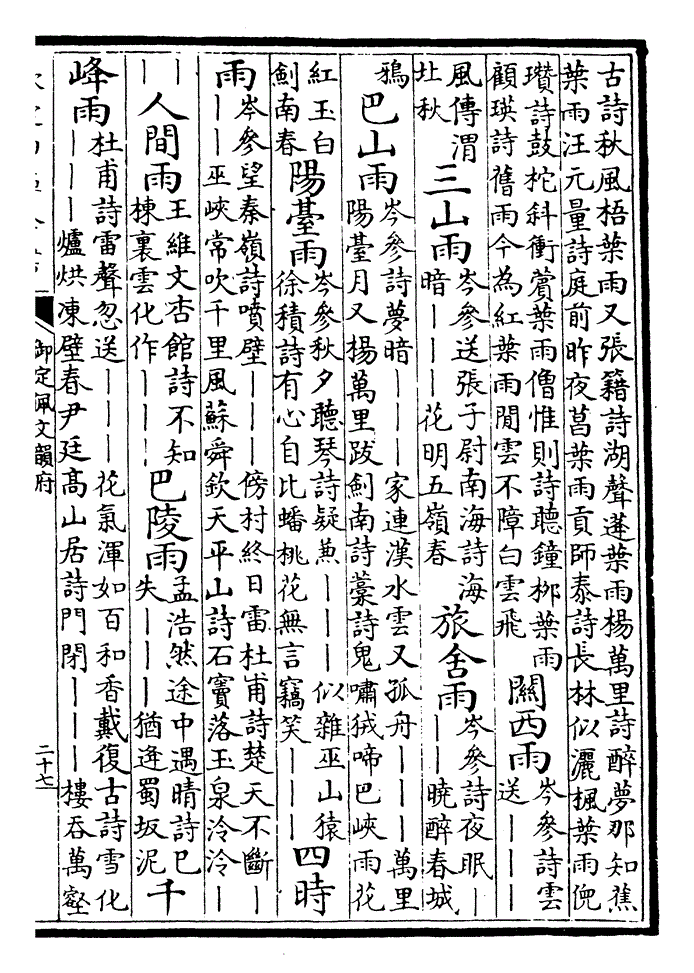 古詩秋風梧葉雨又張籍詩湖聲蓬葉雨楊萬里詩醉夢那知蕉
葉雨汪元量詩庭前昨夜菖葉雨貢師泰詩長林似灑楓葉雨倪
瓚詩鼓柁斜衝蒷葉雨僧惟則詩聽鐘柳葉雨
顧瑛詩舊雨今為紅葉雨閒雲不障白雲飛
關西雨
岑參詩雲
送｜｜｜
風傳渭
北秋
三山雨
岑參送張子尉南海詩海
暗｜｜｜花明五嶺春
旅舍雨
岑參詩夜眠｜
｜｜曉醉春城
鴉
巴山雨
岑參詩夢暗｜｜｜家連漢水雲又孤舟｜｜｜萬里
陽臺月又楊萬里跋劍南詩藁詩鬼嘯狨啼巴峽雨花
紅玉白
劍南春
陽臺雨
岑參秋夕聽琴詩疑兼｜｜｜似雜巫山猿
徐積詩有心自比蟠桃花無言竊笑｜｜｜
四時
雨
岑參望秦嶺詩噴壁｜｜｜傍村終日雷杜甫詩楚天不斷｜
｜｜巫峽常吹千里風蘇舜欽天平山詩石竇落玉泉泠泠｜
｜
｜
人間雨
王維文杏館詩不知
棟裏雲化作｜｜｜
巴陵雨
孟浩然途中遇晴詩已
失｜｜｜猶逢蜀坂泥
千
峰雨
杜甫詩雷聲忽送｜｜｜花氣渾如百和香戴復古詩雪化
｜｜｜爐烘凍壁春尹廷高山居詩門閉｜｜｜樓吞萬壑
御定佩文韻府
二十七